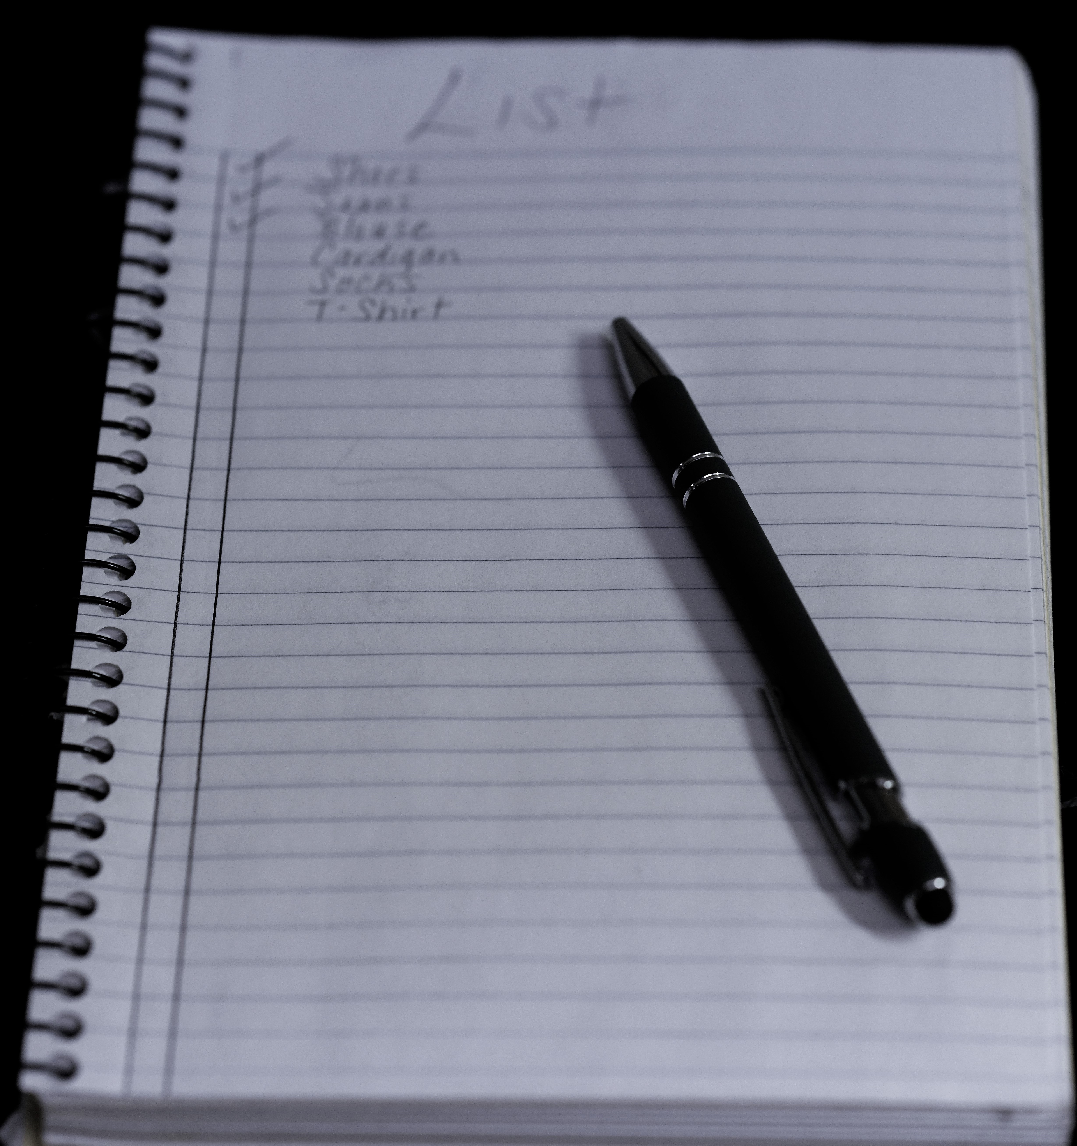 List
Shoes
Jeans
Blouse
Cardigan
Socks
T-Shirt